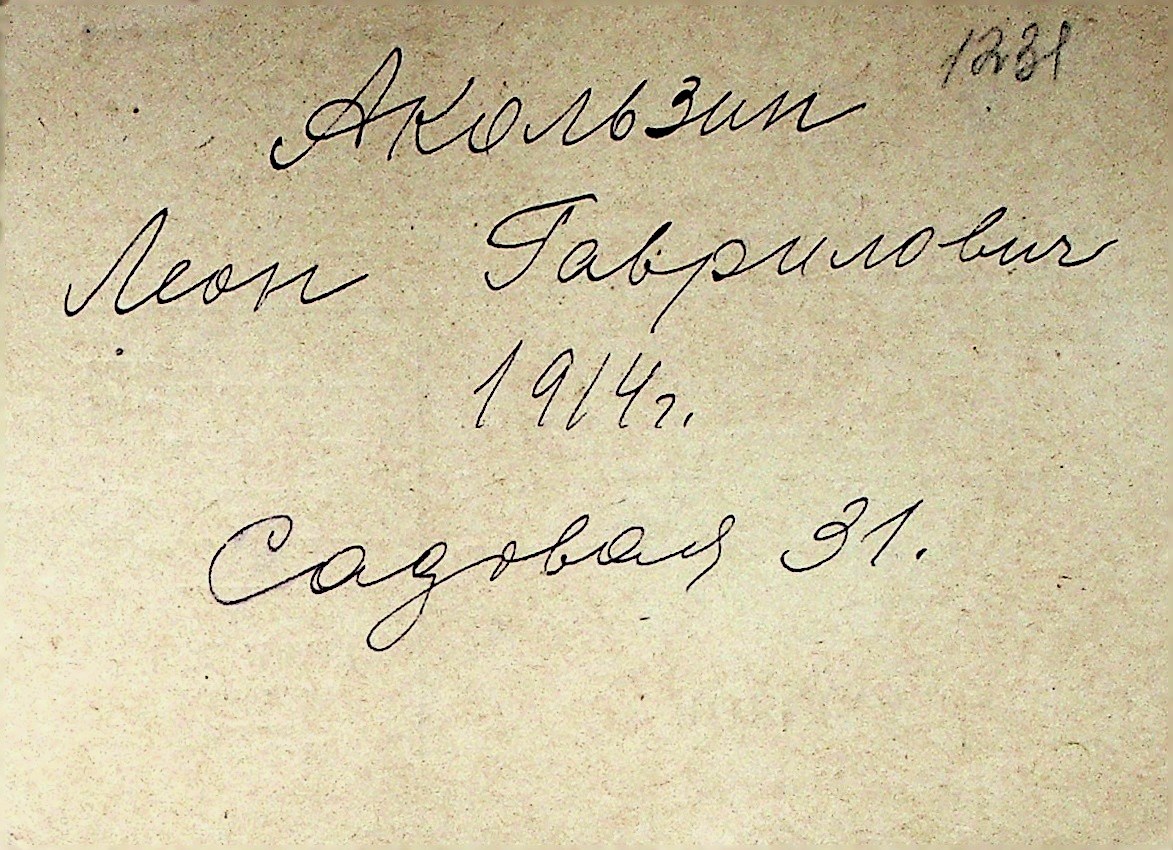 1231
Акользин
Леон Гаврилович
1914г.
Садовая 31.